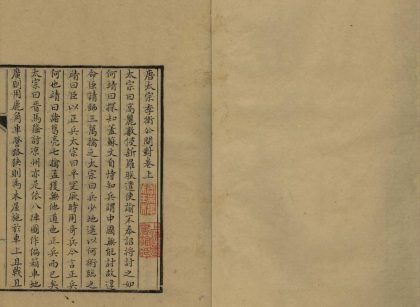 唐太宗李衛公問對卷上
太宗曰高麗數侵新羅朕遣使諭不奉詔將討之如
何靖曰探知蓋蘇文自恃知兵謂中國無能討故違
命臣請師三萬擒之太宗曰兵少地遙以何術臨之
靖曰臣以正兵太宗曰平突厥時用奇兵今言正兵
何也靖曰諸葛亮七擒孟獲無他道也正兵而已矣
太宗曰晉馬隆討涼州亦是依八陣圖作偏箱車地
廣則用鹿角車營路狹則爲木屋施於車上且戰且